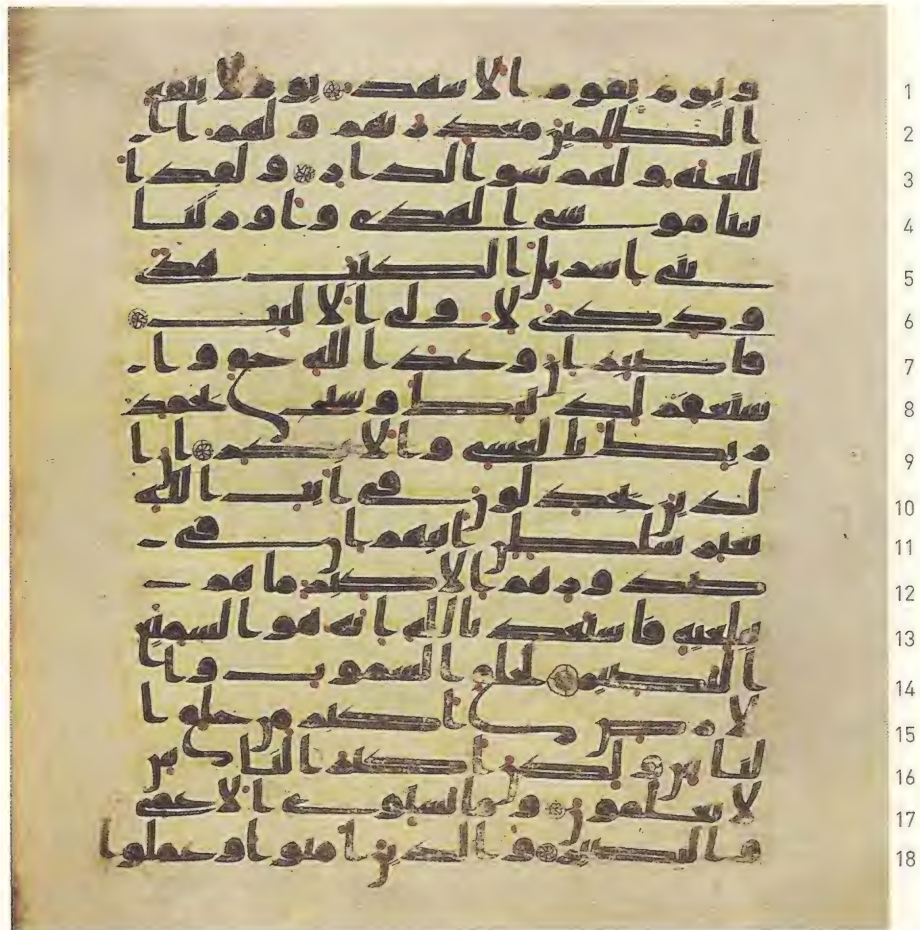 1 ويوم يقوم الاشهد يوم لا ينفع
2 الظلمين معذرتهم ولهم ا
3 للعنه ولهم سو الدار ولقد ا
4 تينا موسى الهدى واورثنا
5 بنى اسريل الكتب هدى
6 وذكرى لاولى الالبب
7 فاصبر ان وعد الله حق وا
8 ستغفر لذنبك وسبح بحمد
9 ربك بالعشى والابكر ان ا
10 لذين يجدلون فى ايت الله
11 بغير سلطن اتيهم ان فى
12 صدورهم الا كبر ما هم
13 ببلغيه فاستعذ بالله انه هو السميع
14 البصير لخلق السموت وا
15 لارض اكبر من خلق ا
16 لناس ولكن اكثر الناس
17 لا يعلمون وما يستوى الاعمى
18 والبصير والذين امنوا وعملوا